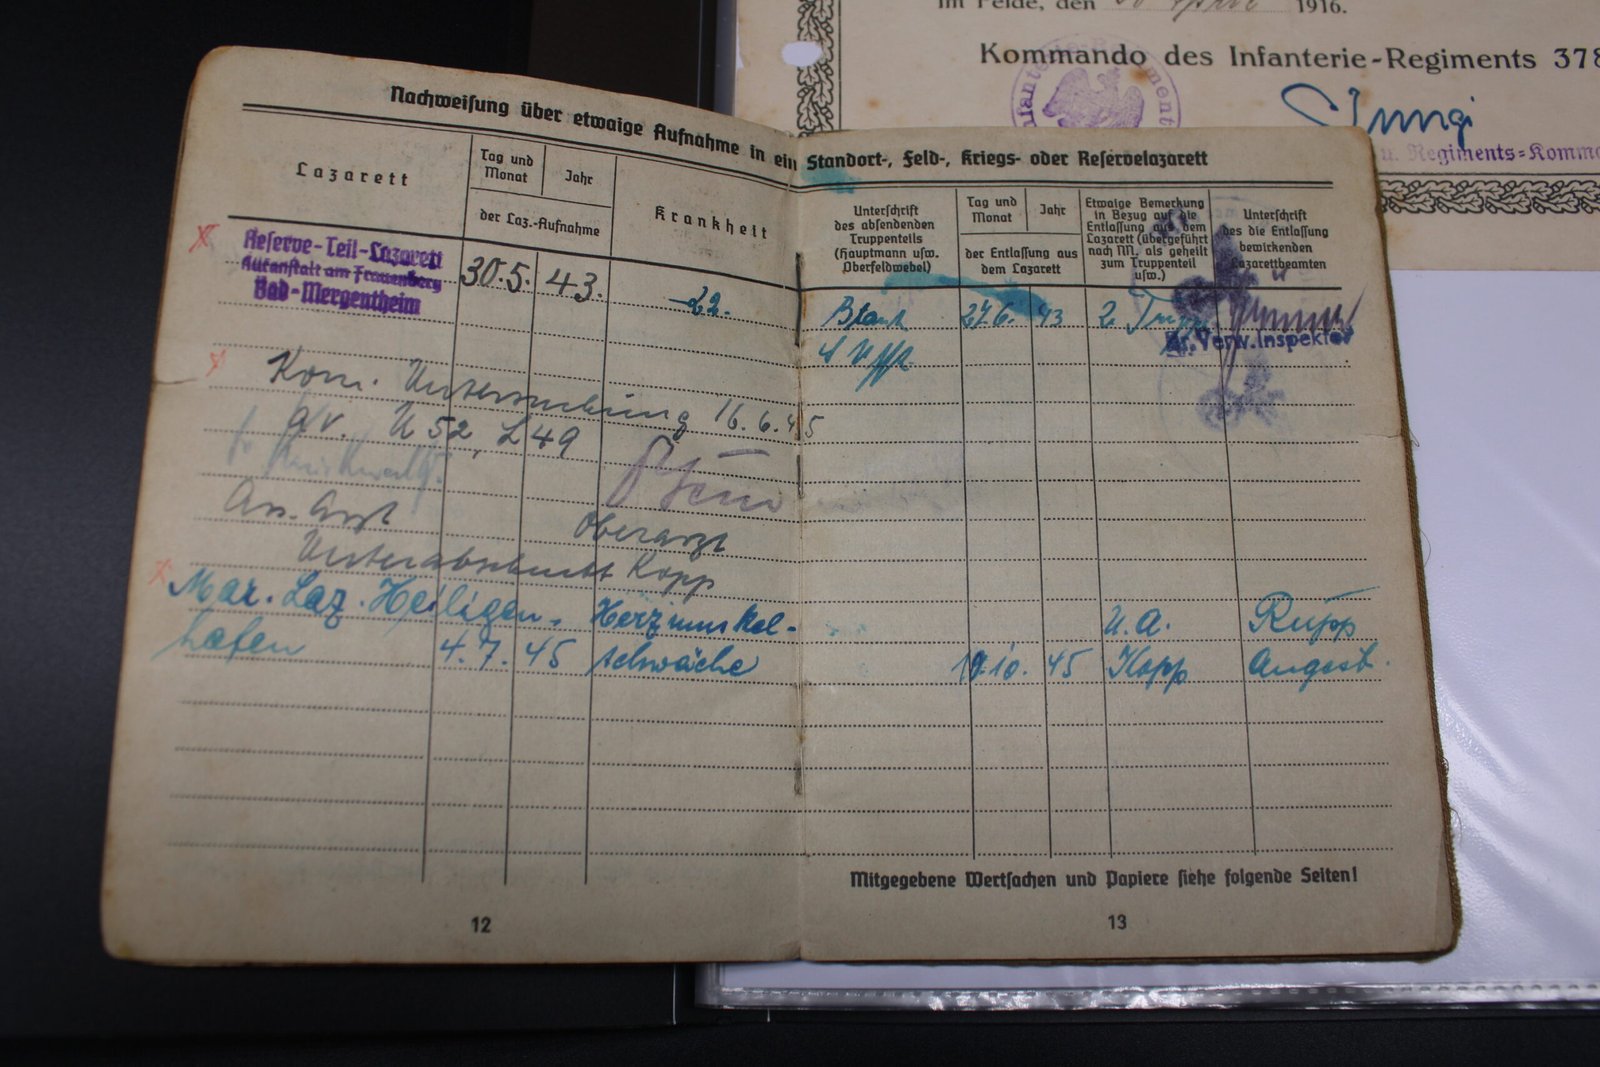 Im Felde, den 1916.
Kommando des Infanterie-Regiments 378
u. Regiments=Komma
Nachweisung über etwaige Aufnahme in ein Standort-, Feld-, Kriegs- oder Reservelazarett
Lazarett
Tag und Monat
Jahr
der Laz.-Aufnahme
Krankheit
Unterschrift des absendenden Truppenteils (Hauptmann usw. Oberfeldwebel)
Tag und Monat
Jahr
der Entlassung aus dem Lazarett
Etwaige Bemerkung in Bezug auf die Entlassung aus dem Lazarett (übergeführt nach NN. als geheilt zum Truppenteil usw.)
Unterschrift des die Entlassung bewirkenden Lazarettbeamten
Reserve-Teil-Lazarett
Kuranstalt am Frauenberg
Bad-Mergentheim
30.5. 43. 22. 27.6. 43
Verw.Inspektor
Kom. Untersuchung 16.6.45
gv. U 52, L 49
Ass. Arzt Oberarzt
Unterabschnitt Kopp
Mar. Laz. Heiligen- Herzmuskel- U.A. Rupp
hafen 4.7. 45 schwäche 10. 45 Kopp
Mitgegebene Wertsachen und Papiere siehe folgende Seiten!
12
13